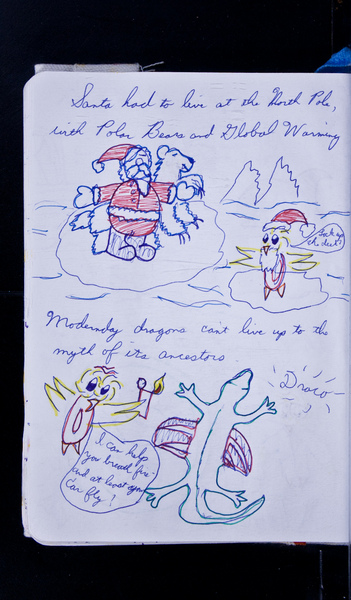 Santa had to live at the North Pole,
with Polar Bears and Global Warming
the deck!
Modernday dragons can't live up to the
myth of its ancestors.
Draco
I can help
you breath fire
and at least you
can fly!